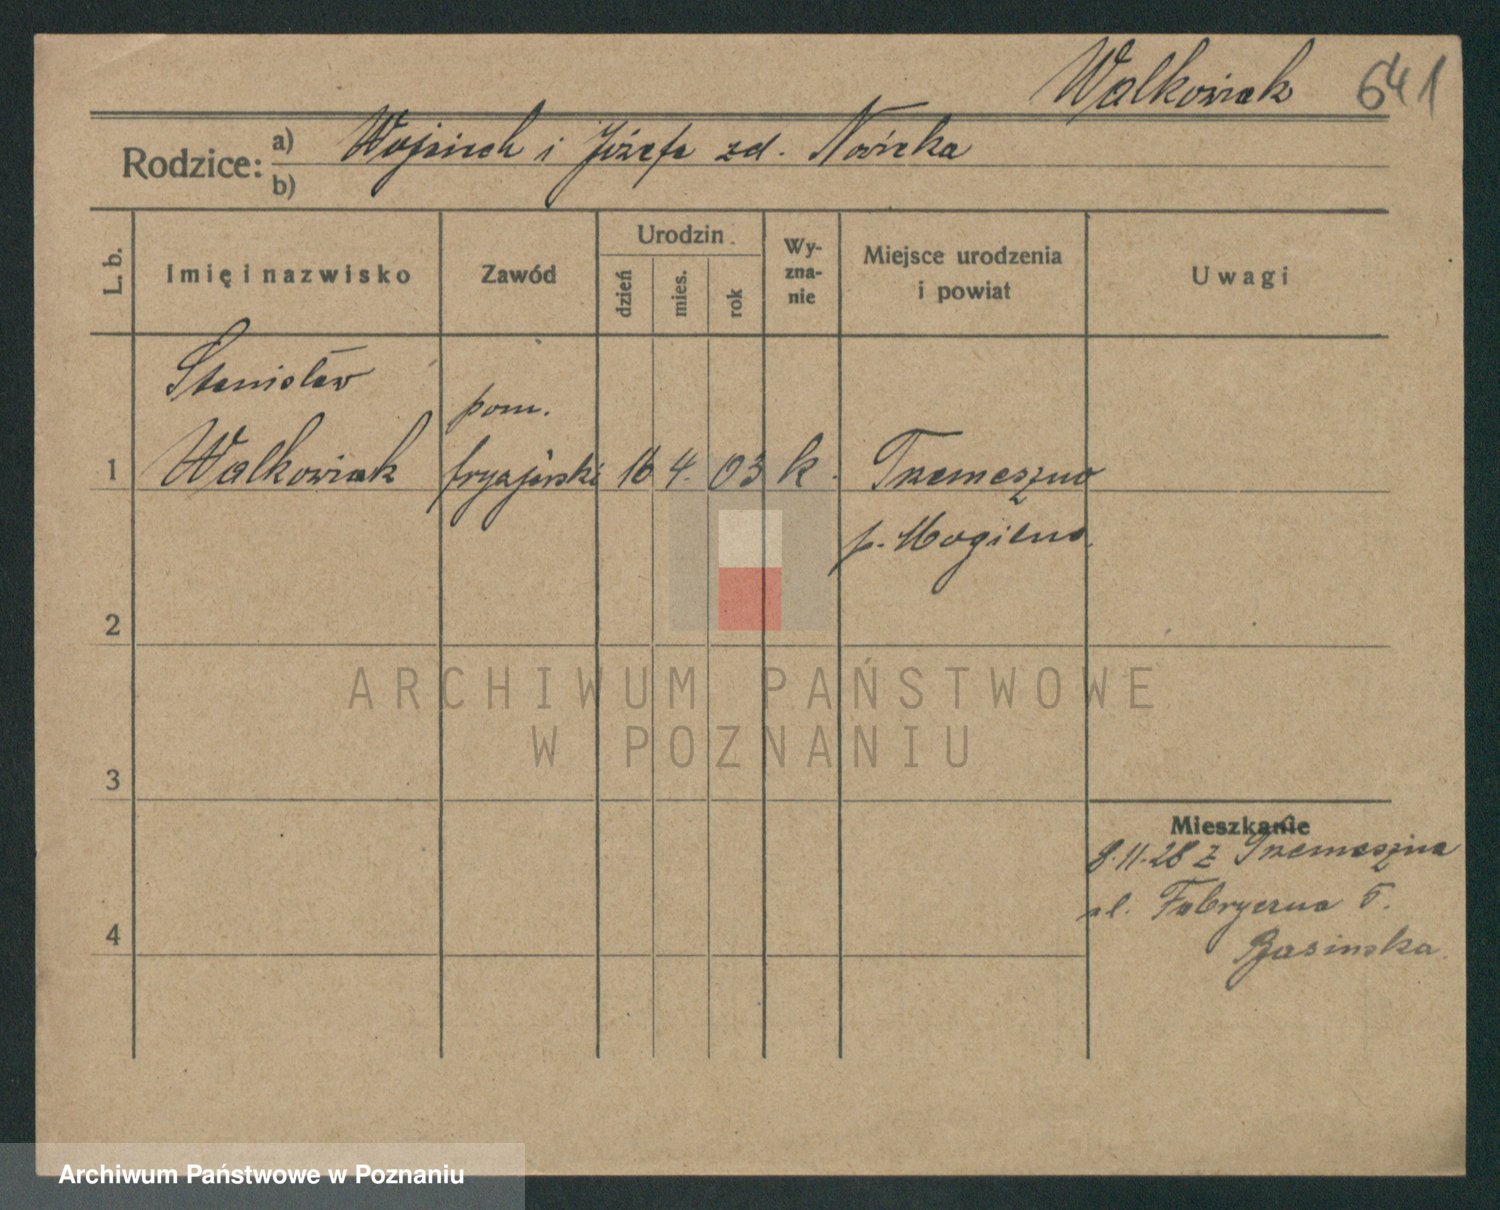 Walkowiak 641
Rodzice: a) Wojciech i Józefa zd. Nowicka
b)
L. b. Imię i nazwisko Zawód Urodzin dzień mies. rok Wyznanie Miejsce urodzenia i powiat Uwagi
Stanisław pom.
1 Walkowiak fryzjerski 16 4. 03 k. Trzemeszno
p. Mogilno.
2
ARCHIWUM PAŃSTWOWE
W POZNANIU
3
Mieszkanie
8.11.28 z Trzemeszna
ul. Fabryczna 5.
4
Archiwum Państwowe w Poznaniu